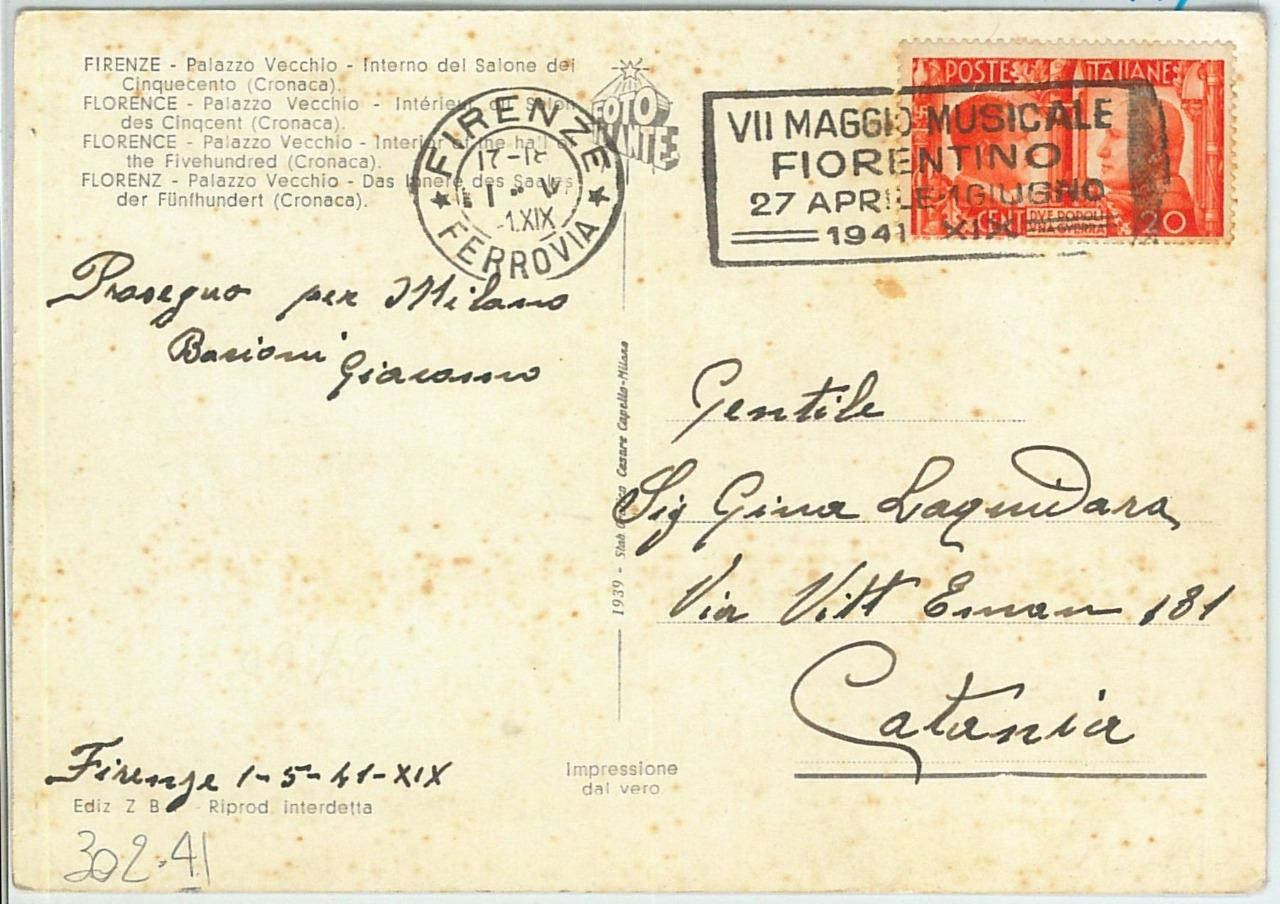 FIRENZE - Palazzo Vecchio - Interno del Salone dei
Cinquecento (Cronaca).
FLORENCE - Palazzo Vecchio - Intérieur du Salon
des Cinqcent (Cronaca).
FLORENCE - Palazzo Vecchio - Interior of the hall of
the Fivehundred (Cronaca).
FLORENZ - Palazzo Vecchio - Das Innere des Saales
der Fünfhundert (Cronaca).
FOTO
FIRENZE
17-18
1. V
-1.XIX
FERROVIA
POSTE ITALIANE
CENT DVE POPOLI 20
VNA GVERRA
VII MAGGIO MUSICALE
FIORENTINO
27 APRILE-1 GIUGNO
1941 XIX
Prosegno per Milano
Giacomo
1939 - Stab. Grafico Cesare Capello-Milano
Gentile
Sig Gina Laquidara
Via Vitt Eman 181
Catania
Firenze 1-5-41-XIX
Ediz Z B - Riprod interdetta
Impressione
dal vero
302-41